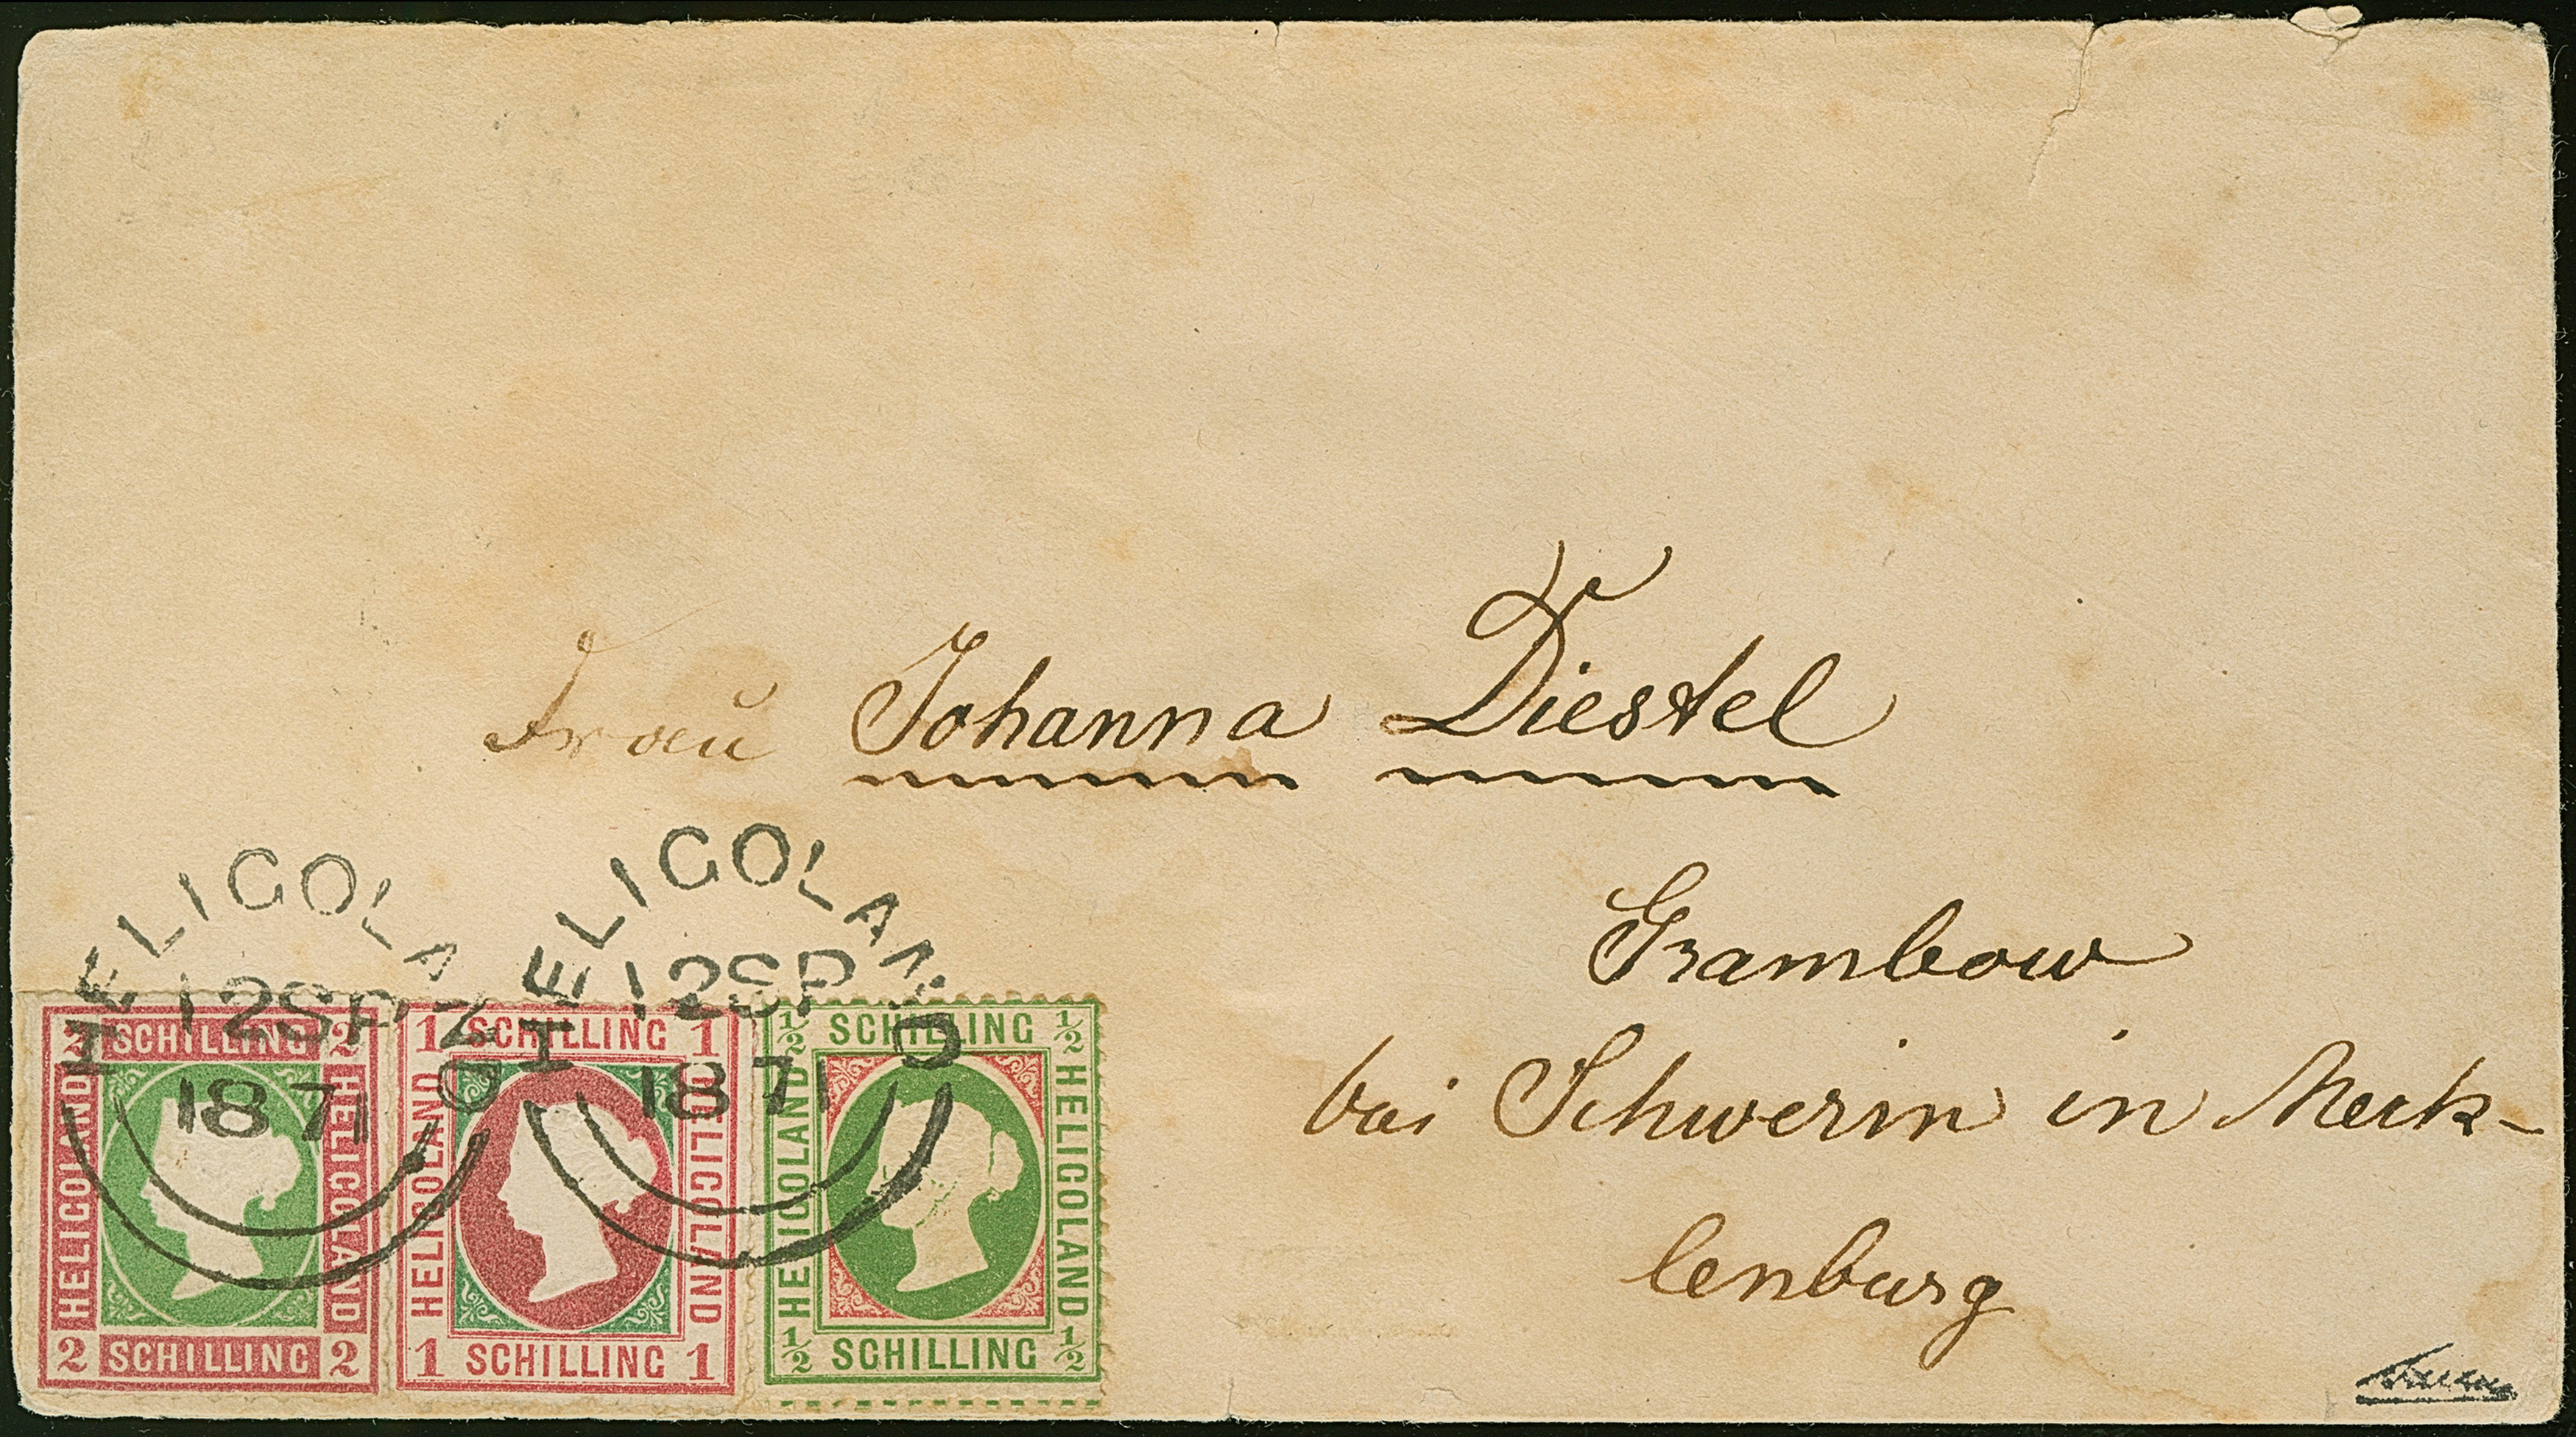 Frau Johanna Diestel
Grambow
bei Schwerin in Meck-
lenburg
HELIGOLAND
12 SP
1871
HELIGOLAND
12 SP
1871
2 SCHILLING 2
HELIGOLAND
HELIGOLAND
2 SCHILLING 2
1 SCHILLING 1
HELIGOLAND
HELIGOLAND
1 SCHILLING 1
½ SCHILLING ½
HELIGOLAND
HELIGOLAND
½ SCHILLING ½